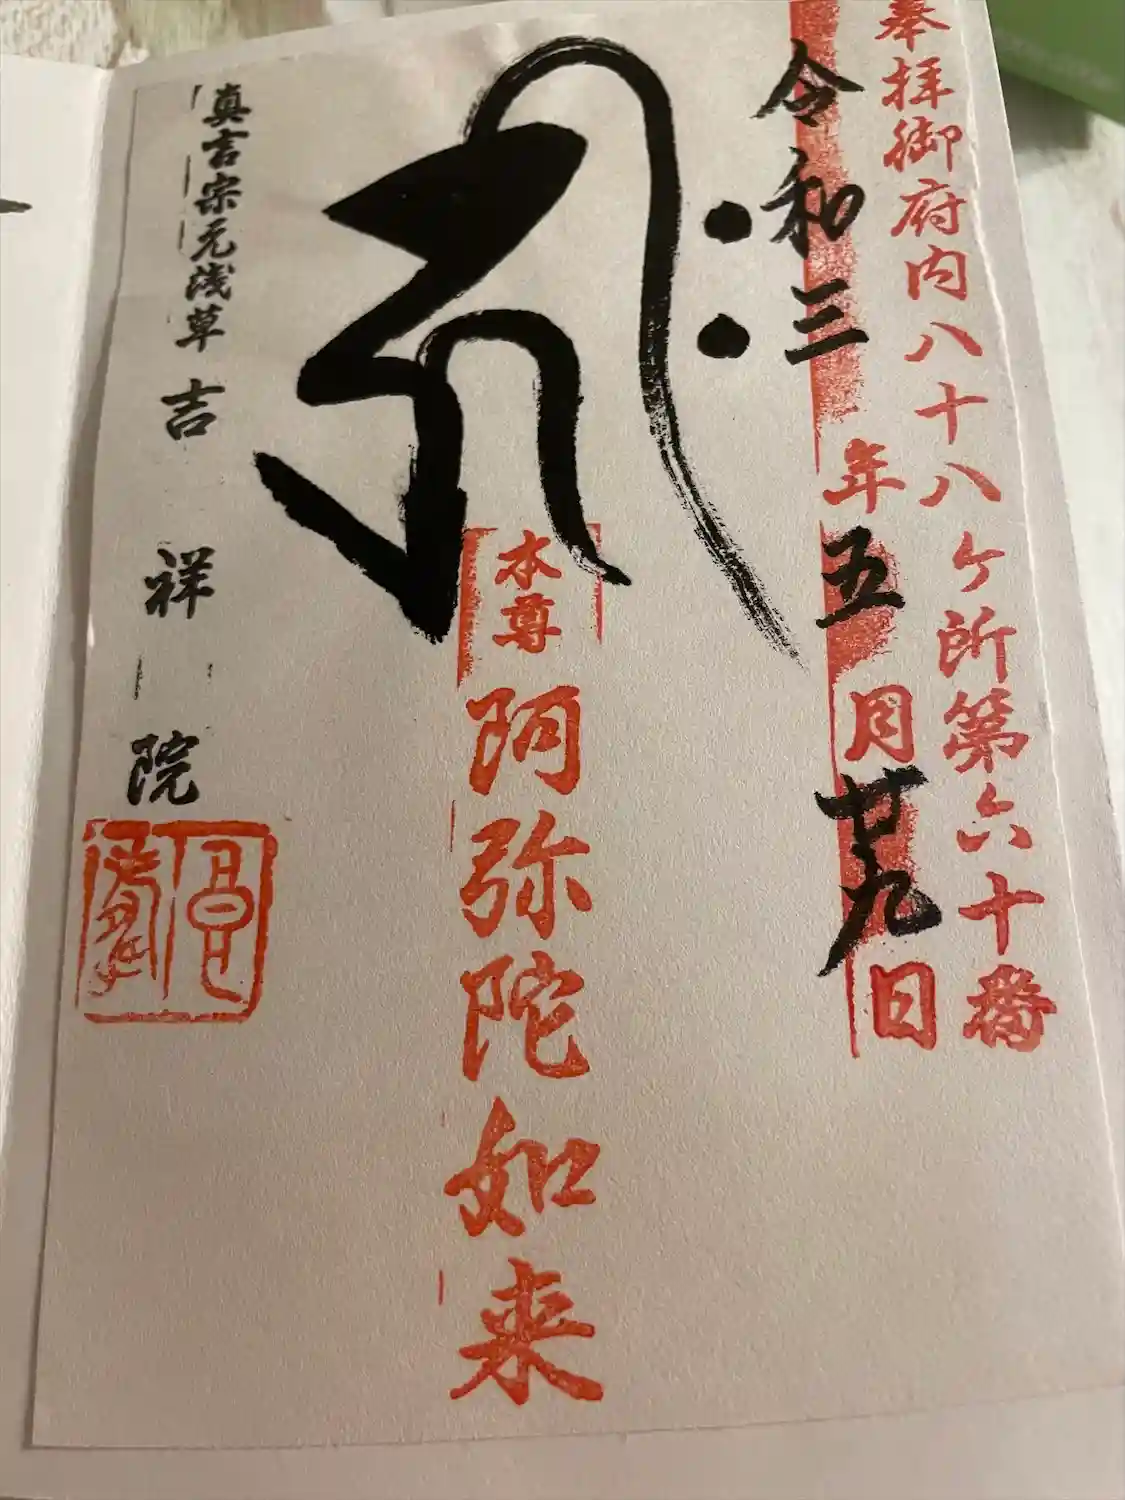 奉拝御府内八十八ケ所第六十番
令和三年五月廿九日
本尊
阿弥陀如来
真言宗元浅草 吉祥院